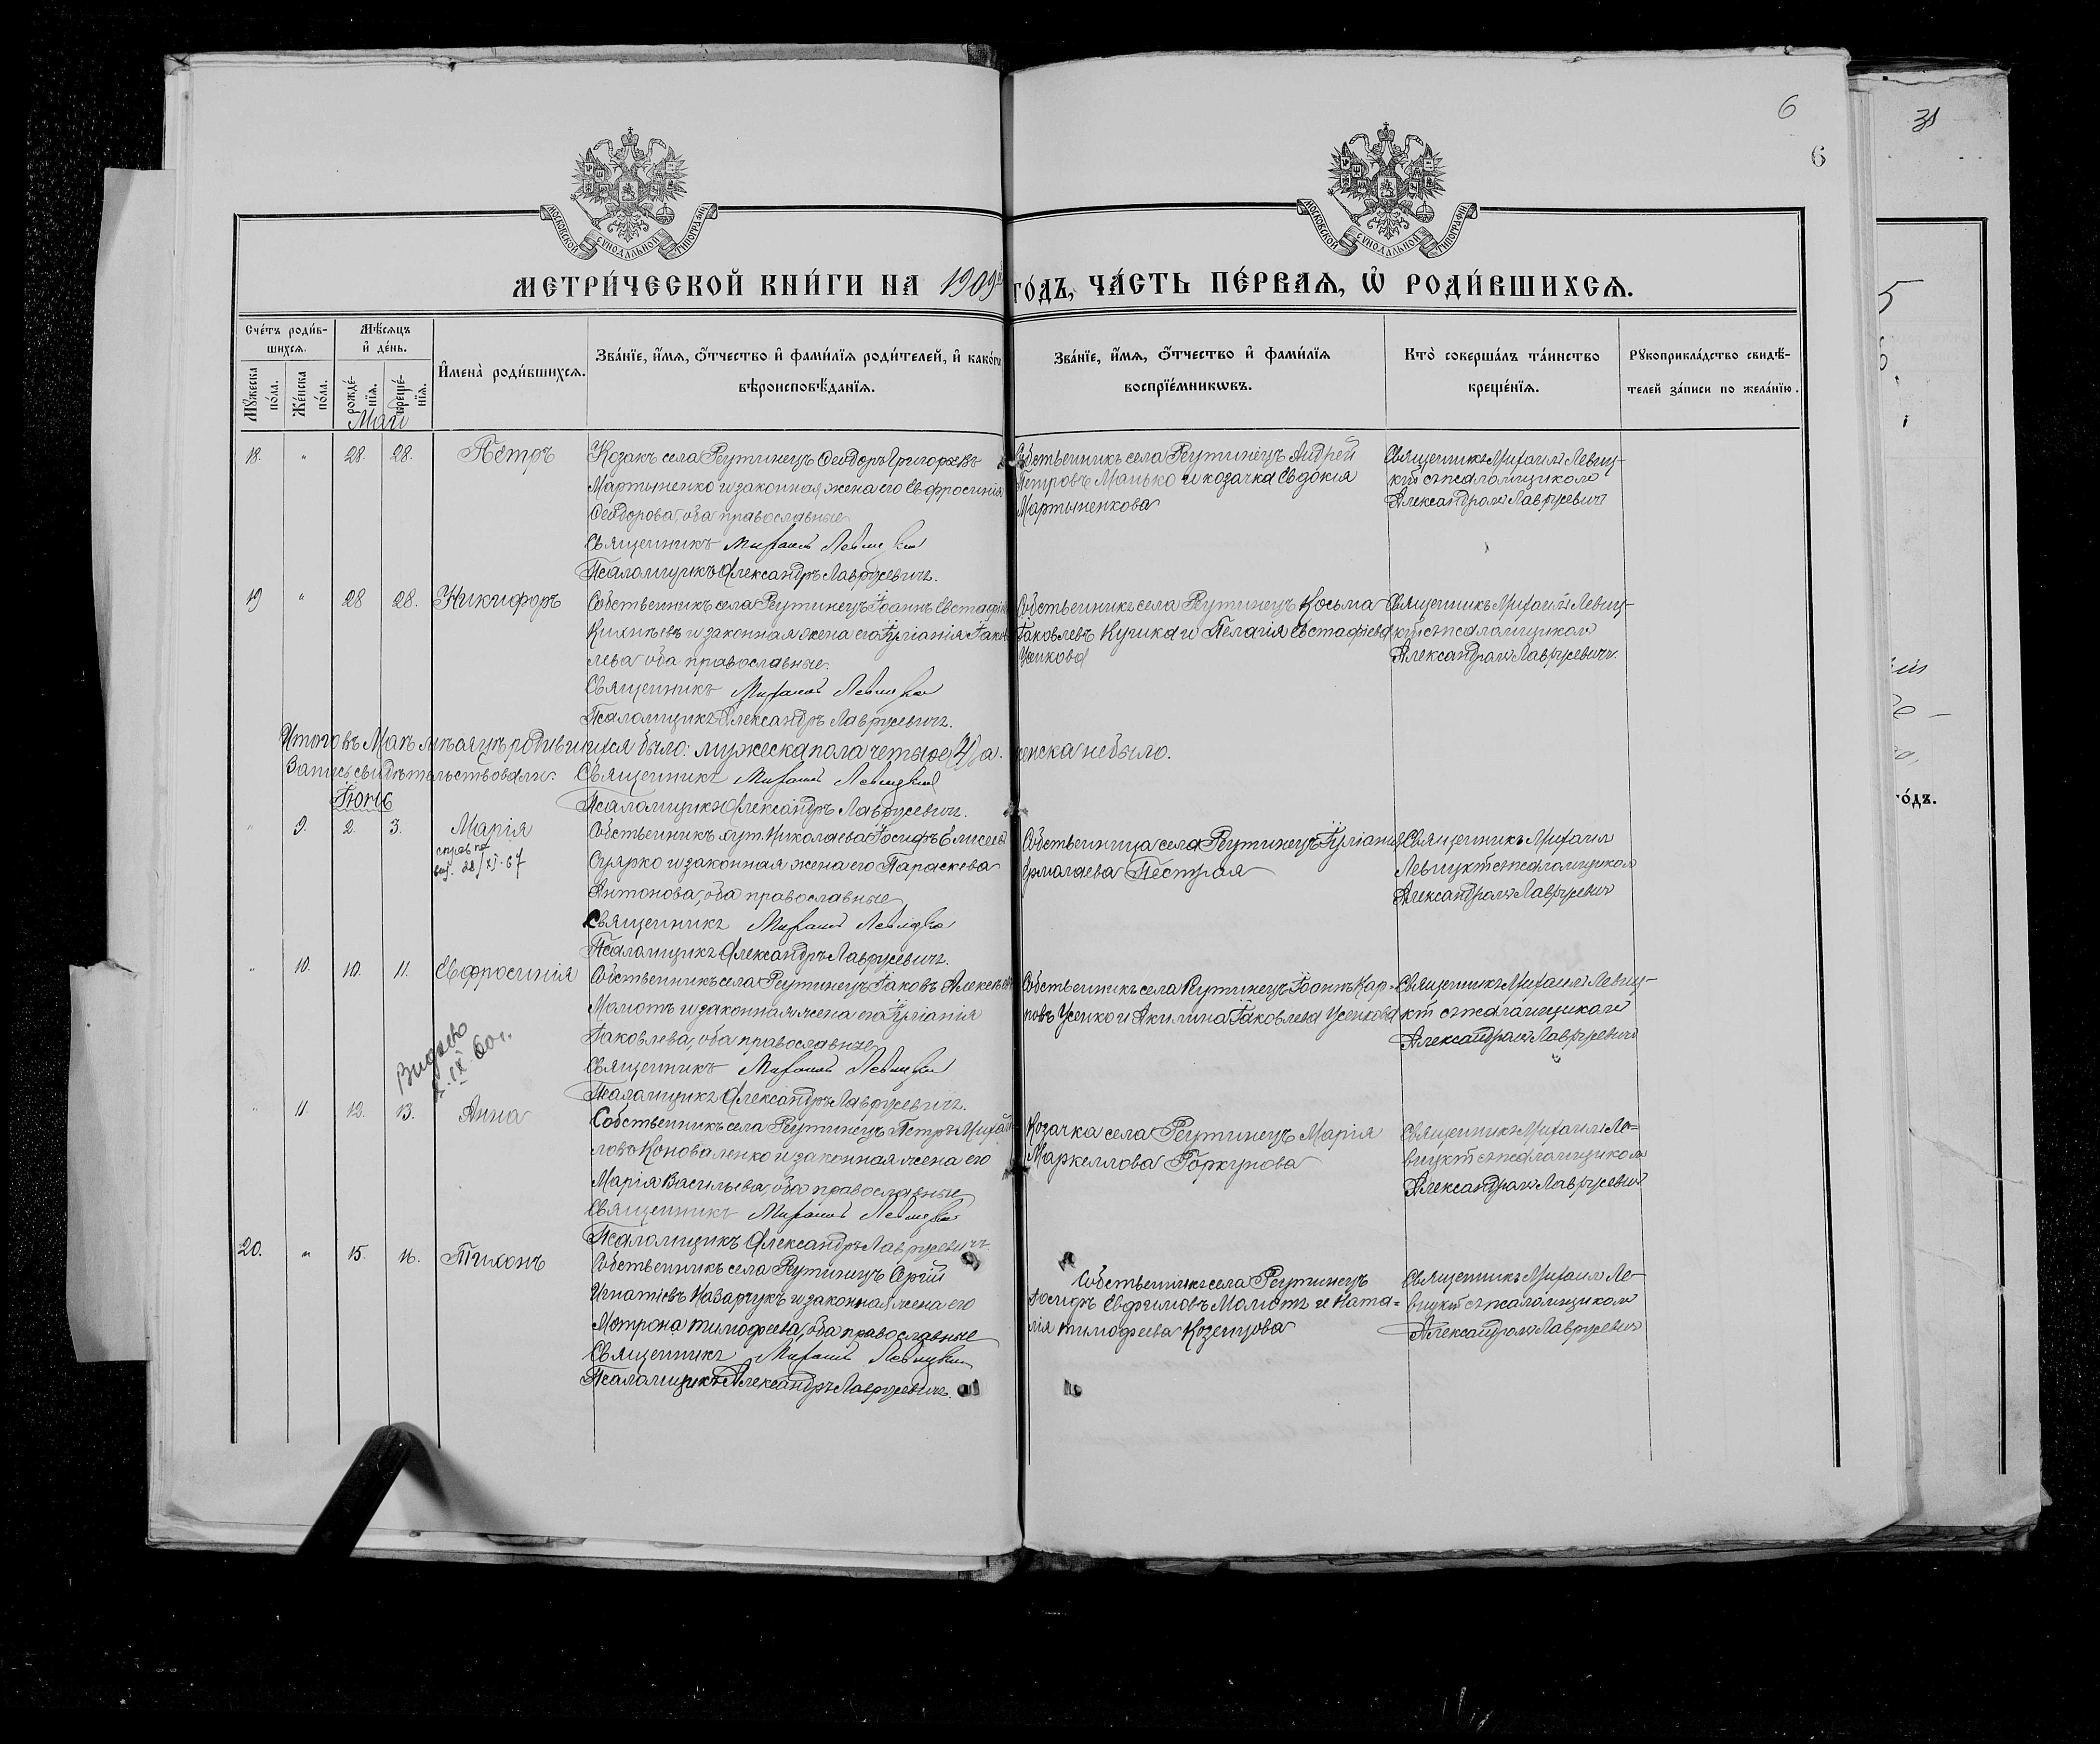 6
6
31
МОСКОВСКОЙ СѴНОДАЛЬНОЙ ТИПОГРАФІИ
МОСКОВСКОЙ СѴНОДАЛЬНОЙ ТИПОГРАФІИ
МЕТРИ́ЧЕСКОЙ КНИ́ГИ НА 1909й ГО́ДЪ, ЧА́СТЬ ПЕ́РВАЯ, Ѡ҆ РОДИ́ВШИХСЯ.
Сче́тъ роди́в-
шихся.
Мѣ́сяцъ
и҆ де́нь.
Мꙋ́жеска
по́ла.
Же́нска
по́ла.
рожде́-
нїя.
креще́-
нїя.
И҆мена̀ роди́вшихся.
Зва́нїе, и҆́мя, ѻ҆́тчество и҆ фами́лїя роди́телей, и҆ како́гѡ
вѣроисповѣ́данїя.
Зва́нїе, и҆́мя, ѻ҆́тчество и҆ фами́лїя
воспрїе́мникѡвъ.
Кто̀ соверша́лъ та́инство
креще́нїя.
Рꙋкоприкла́дство свидѣ́-
телей за́писи по жела́нїю.
Май
18. " 28. 28. Петръ
Козакъ села Реутинецъ Ѳеодоръ Григорьевъ
Мартыненко и законная жена его Евфросинія
Ѳеодорова, оба православные
Священникъ Михаилъ Левицкій
Псаломщикъ Александръ Лаврусевичъ.
Собственникъ села Реутинецъ Андрей
Петровъ Манько и козачка Евдокія
Мартыненкова
Священникъ Михаилъ Левиц-
кій съ псаломщикомъ
Александромъ Лаврусевичъ
19 " 28 28. Никифоръ
Собственникъ села Реутинецъ Іоаннъ Евстафіевъ
и законная жена его Іуліанія Іаков
лева оба православные.
Священникъ Михаилъ Левицкій
Псаломщикъ Александръ Лаврусевичъ.
Собственникъ села Реутинецъ Косьма
Іаковлевъ Кучика и Пелагія Евстафіева
Усикова
Священникъ Михаилъ Левиц-
кій съ псаломщикомъ
Александромъ Лаврусевичъ.
Итого въ Маѣ мѣсяцѣ родившихся было: мужеска пола четыре (4) а женска небыло.
Запись свидѣтельствовали: Священникъ Михаилъ Левицкій
Псаломщикъ Александръ Лаврусевичъ.
Іюнь
" 9. 2. 3. Марія
28/XI-67
Собственникъ хут. Николаева Іосифъ Елисеев
и законная жена его Параскева
Антонова, оба православные
Священникъ Михаилъ Левицкій
Псаломщикъ Александръ Лаврусевичъ.
Собственница села Реутинецъ Іуліанія
Ермолаева Пестрая
Священникъ Михаилъ
Левицкій съ псаломщикомъ
Александромъ Лаврусевичъ
" 10. 10. 11. Евфросинія
Видано
IX. 60 г.
Собственникъ села Реутинецъ Іаковъ Алексѣевъ
Мамотъ и законная жена его Іуліанія
Іаковлева, оба православные
Священникъ Михаилъ Левицкій
Псаломщикъ Александръ Лаврусевичъ.
Собственникъ села Реутинецъ Іоаннъ Кар-
повъ Усенко и Акилина Іаковлева Усенкова
Священникъ Михаилъ Левиц-
кій съ псаломщикомъ
Александромъ Лаврусевичъ
" 11 12. 13. Анна
Собственникъ села Реутинецъ Петръ Михай-
ловъ Коноваленко и законная жена его
Марія Васильева, оба православные
Священникъ Михаилъ Левицкій
Псаломщикъ Александръ Лаврусевичъ.
Козачка села Реутинецъ Марія
Маркеллова Горкунова
Священникъ Михаилъ Ле=
вицкій съ псаломщикомъ
Александромъ Лаврусевичъ
20. " 15. 16. Тихонъ
Собственникъ села Реутинецъ Сергій
Игнатіевъ Назарчукъ и законная жена его
Мотрона Тимофеева, оба православные
Священникъ Михаилъ Левицкій
Псаломщикъ Александръ Лаврусевичъ.
Собственникъ села Реутинецъ
Іосифъ Евфимовъ Мамотъ и Ната=
лія Тимофеева Коземцова
Священникъ Михаилъ Ле-
вицкій съ псаломщикомъ
Александромъ Лаврусевичъ
го́дъ.